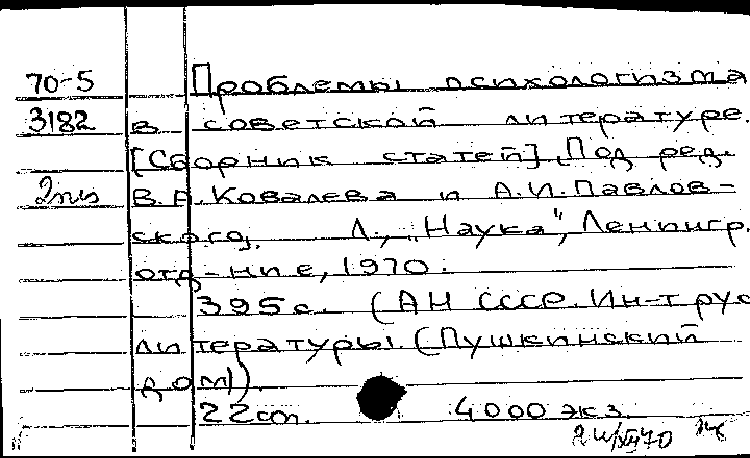 70-5 Проблемы психологизма
3182 в советской литературе.
[Сборник статей]. Под ред.
В.А. Ковалева и А.И. Павлов-
ского. Л., „Наука", Ленингр.
отд-ние, 1970.
395 с. (АН СССР. Ин-т рус
литературы (Пушкинский
дом)).
22 см. 4000 экз.